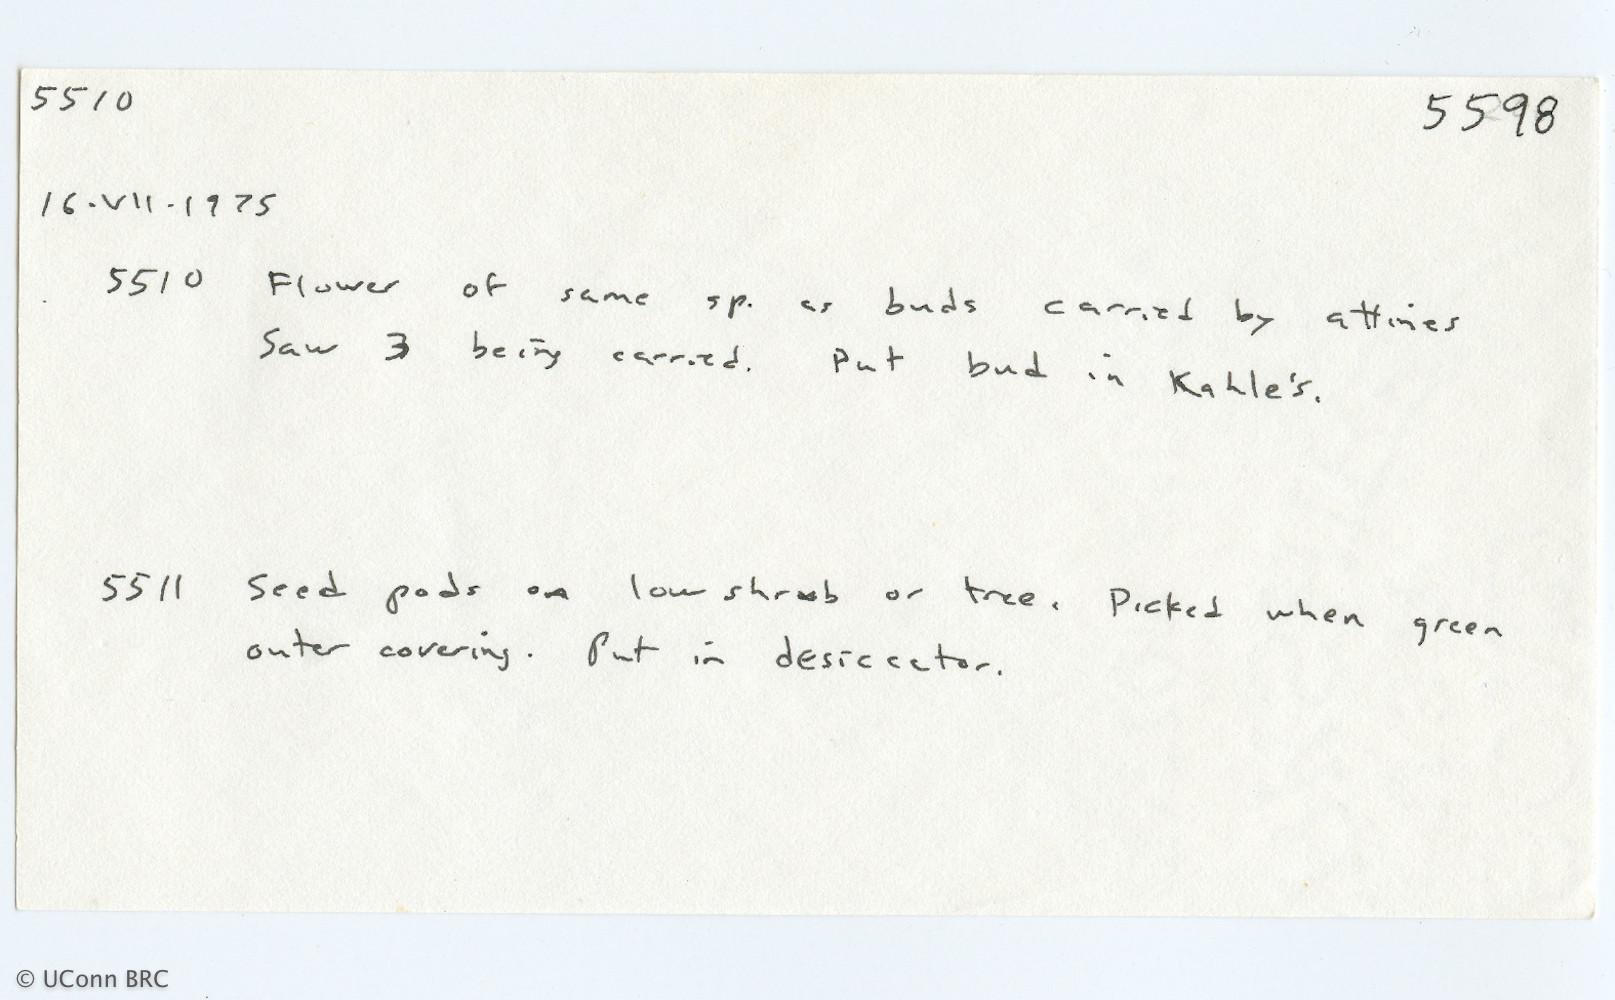 5510
5598
16.VII.1975
5510 Flower of same sp. as buds carried by attines
Saw 3 being carried. Put bud in Kahle's.
5511 Seed pods on low shrub or tree. Picked when green
outer covering. Put in desiccator.
© UConn BRC